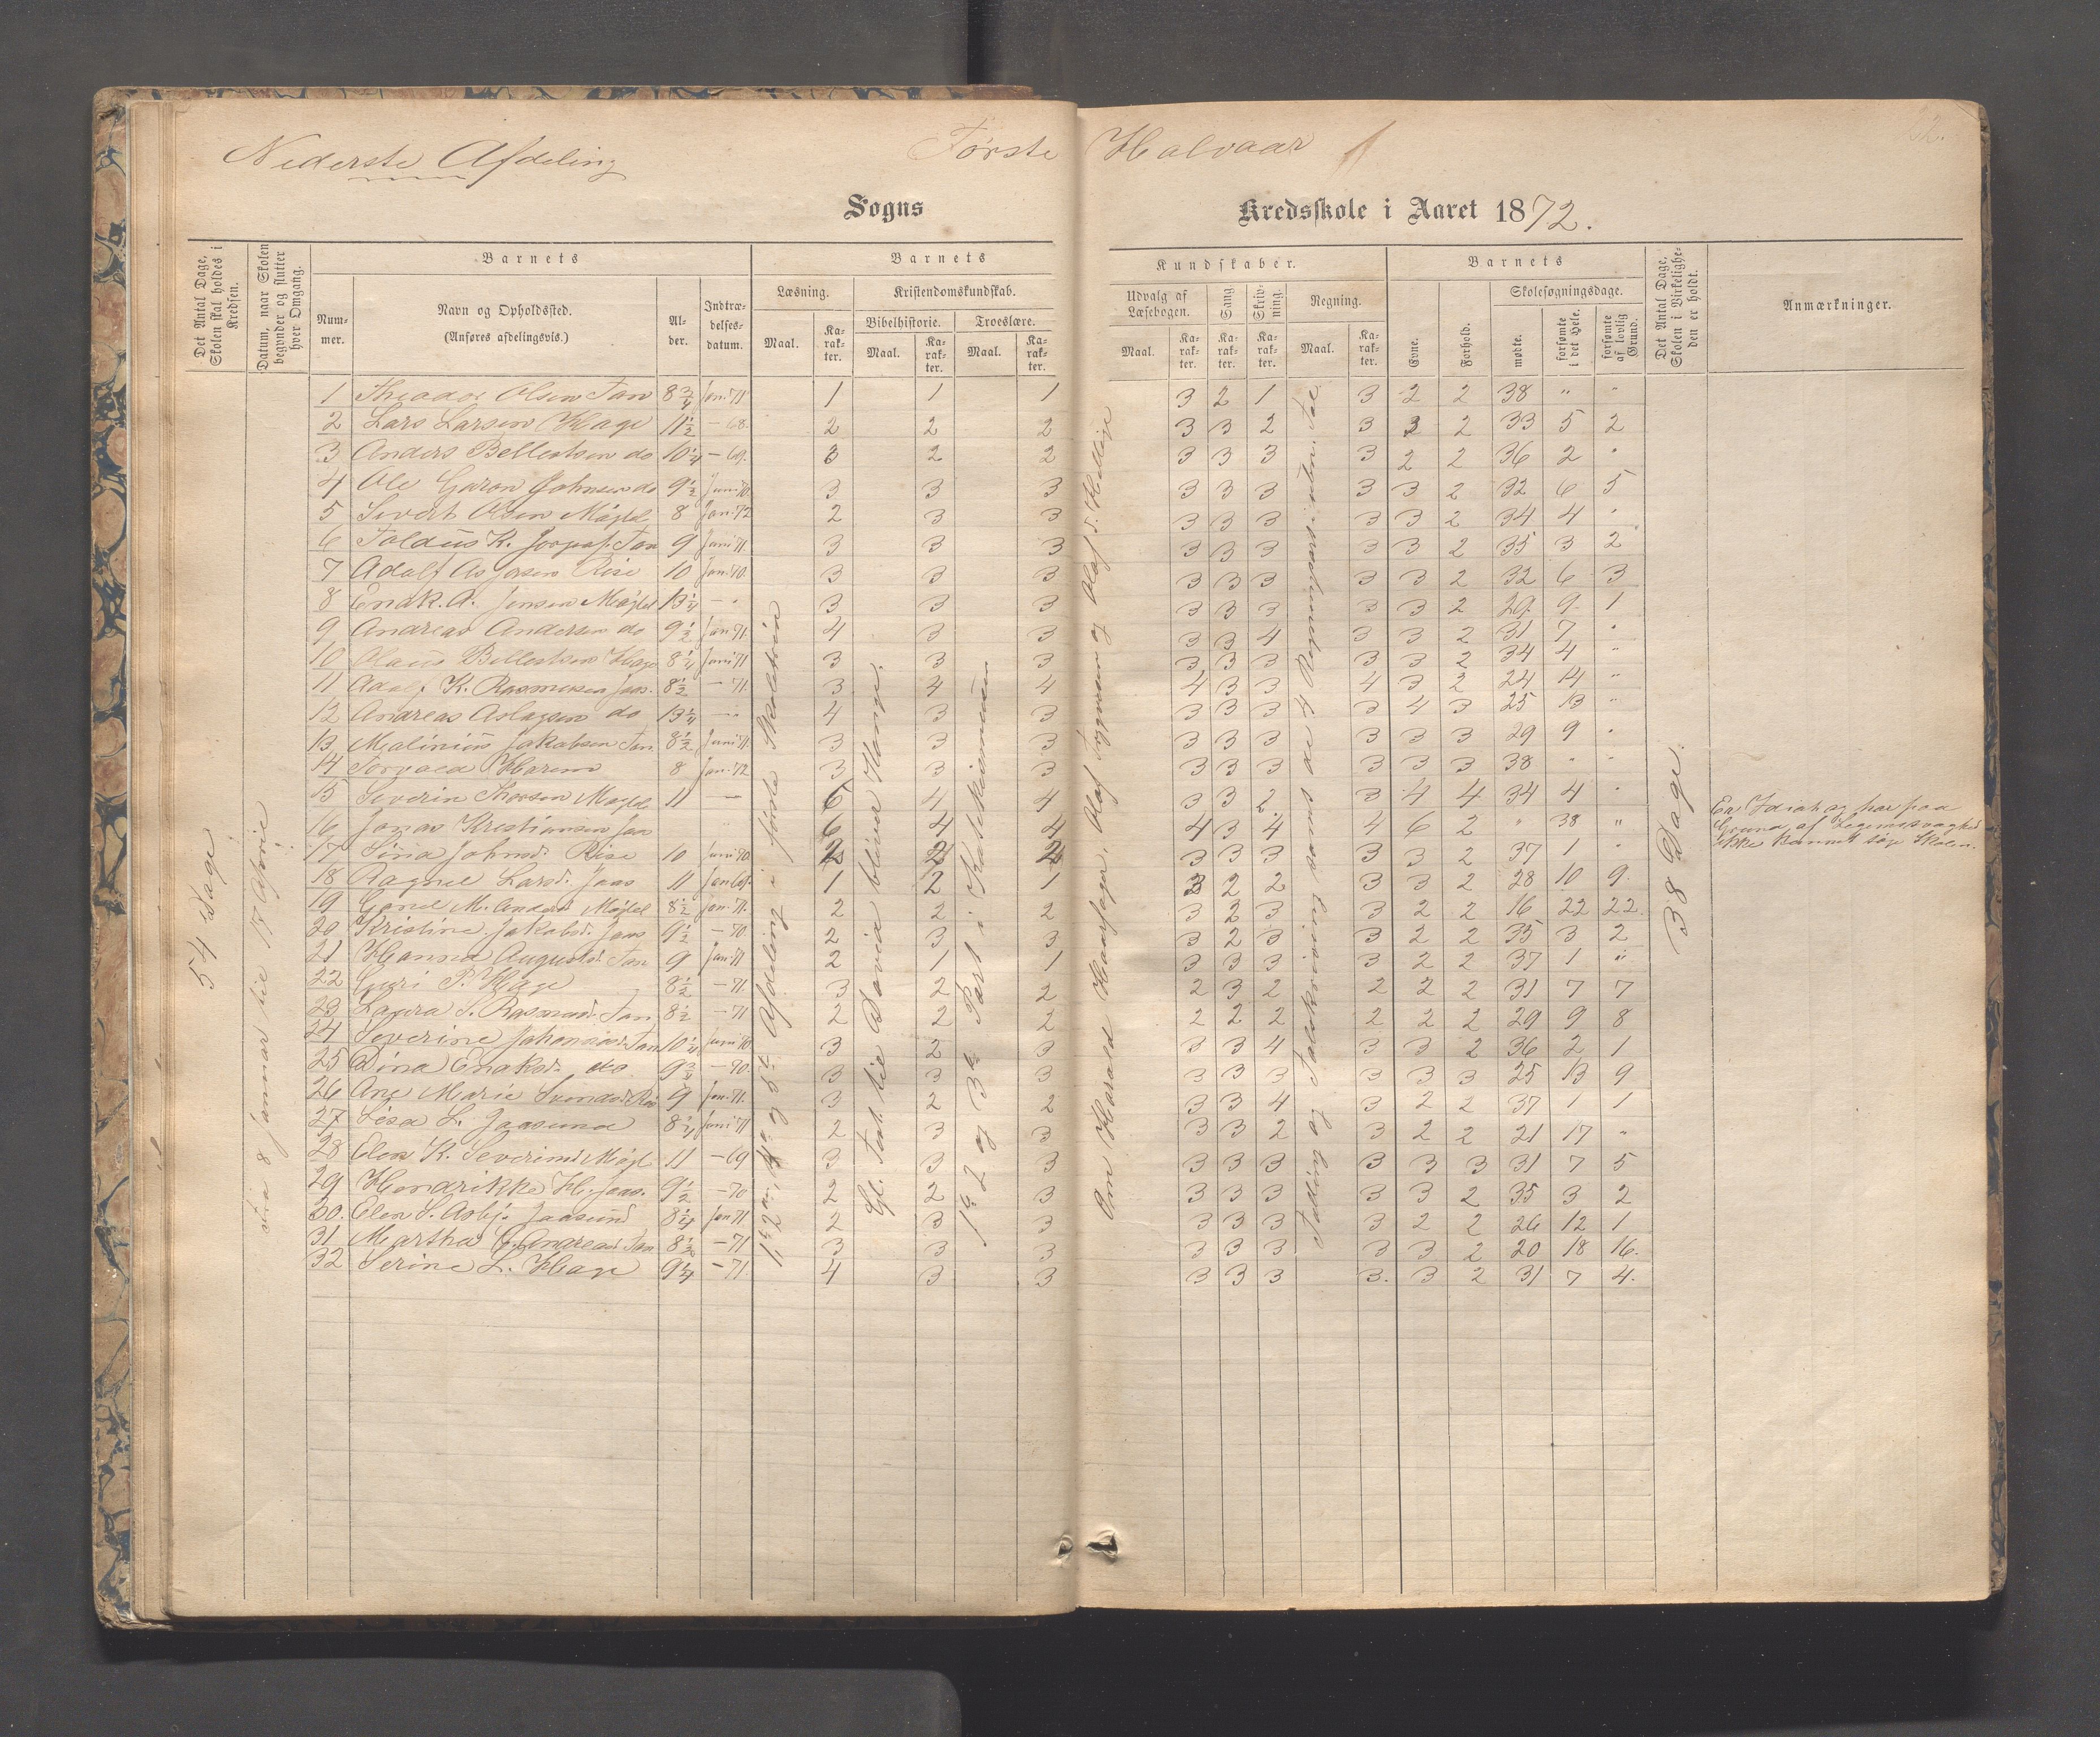 Nederste Afdeling
Første Halvaar
Sogns Kredsskole i Aaret 1872.
Det Antal Dage, Skolen skal holdes i Kredsen.
Datum, naar Skolen begynder og slutter hver Omgang.
Barnets
Num-mer.
Navn og Opholdssted.
(Anføres afdelingsvis.)
Al-der.
Indtræ-delses-datum.
Barnets
Læsning.
Maal.
Ka-rak-ter.
Kristendomskundskab.
Bibelhistorie.
Maal.
Ka-rak-ter.
Troeslære.
Maal.
Ka-rak-ter.
Kundskaber.
Udvalg af Læsebogen.
Maal.
Ka-rak-ter.
Sang
Ka-rak-ter.
Skriv-ning.
Ka-rak-ter.
Regning.
Maal.
Ka-rak-ter.
Barnets
Evne.
Forhold.
Skolesøgningsdage.
mødte.
forsømte i det Hele.
forsømte af lovlig Grund.
Det Antal Dage, Skolen i Virkelighe-den er holdt.
Anmærkninger.
54 Dage
fra 8 januar til 17 April
1 Theodor Olsen Tan 8 3/4 Jan. 71 1 1 1 3 2 1 3 2 2 38 " "
2 Lars Larsen Hage 11 1/2 - 68. 2 2 2 3 3 2 3 3 2 33 5 2
3 Anders Bellestsen do 10 1/4 - 69. 3 2 2 3 3 3 3 2 2 36 2 "
4 Ole Johnsen do 9 1/2 Juni 70. 3 3 3 3 3 3 3 3 2 32 6 5
5 Sivert Olsen Mögled 8 Jan. 72 2 3 3 3 3 3 3 3 2 34 4 "
6 Tan 9 Juni 71. 3 3 3 3 3 3 3 3 2 35 3 2
7 Adolf Rise 10 Jan. 70. 3 3 3 3 3 3 3 3 2 32 6 3
8 Enok. A. Jensen Mögled 13 1/4 - " 3 3 3 3 3 3 3 3 2 29 9 1
9 Andreas Andersen do 9 1/2 Jan 71. 4 3 3 3 3 4 3 3 2 31 7 "
10 Olaus Bellestsen Hage 8 1/4 Juni 71 3 3 3 3 3 3 3 3 2 34 4 "
11 Adolf K. Rasmusen Jaas. 8 1/2 - 71. 3 4 4 4 3 3 4 3 2 24 14 "
12 Andreas Aslagsen do 13 1/4 - " 4 3 3 3 3 3 3 4 3 25 13 "
13 Malinius Jakobsen Tan 8 1/2 Juni 71. 3 3 3 3 3 3 3 3 3 29 9 "
14 Torvald Harem 8 Jan. 72 3 3 3 3 3 3 3 3 3 38 " "
15 Severin Mögled 11 - 6 4 4 3 3 2 3 4 4 34 4 "
16 Jonas Kristiansen Jaa 6 4 4 4 3 4 4 6 2 " 38 "
17 Sina Johnsd. Rise 10 Juni 70. 2 2 2 3 3 3 3 3 2 37 1 "
18 Ragnel Larsd. Jaas 11 Jan 69. 1 2 1 3 2 2 3 3 2 28 10 9.
19 Gonel M. Andersd Mögled 8 1/2 Jan. 71. 2 2 2 3 2 3 3 2 2 16 22 22.
20 Kristine Jakobsd. Jaas 9 1/2 - 70 2 3 3 3 2 3 3 2 2 35 3 2
21 Hanna Augustsd. Tan 9 Jan 71 2 1 1 3 3 3 3 2 2 37 1 "
22 Guri P. Hage 8 1/2 - 71. 3 2 2 2 3 2 2 2 2 31 7 7
23 Laura S. Rasmusd. Tan 8 1/2 - 71 2 2 2 2 2 2 2 2 2 29 9 8
24 Severine Johannesd. Tan 10 1/4 Juni 70 3 2 3 3 3 4 3 3 2 36 2 1
25 Dina Enoksd. do. 9 3/4 - 70. 3 3 3 3 3 3 3 3 3 25 13 9
26 Ane Marie Svendsd. Ris 9 Jan. 71. 3 2 2 3 3 4 3 2 2 37 1 1
27 Lisa L. Jaasund 8 3/4 Juni 71 2 3 3 3 3 2 3 2 2 21 17 "
28 Elen K. Severinsd Mögl 11 - 69 3 3 3 3 3 3 3 3 3 31 7 5
29 Hendrikke H. Jaas. 9 1/2 - 70 2 2 3 3 3 3 3 3 2 35 3 2
30. Elen S. Asbj. Jaasund 8 1/4 Jan 71 2 3 3 3 3 3 3 2 2 26 12 1
31 Martha G. Andreasd. Tan 8 1/2 - 71 3 3 3 3 3 3 3 3 2 20 18 16.
32 Serine L. Hage 9 1/4 - 71 4 3 3 3 3 3 3. 3 2 31 7 4.
Afdeling i første Skoletrin
Gl. Test. til David bliver Konge.
1ste 2 og 3die Part i Katekismusen
Om Harald Haarfager, Olaf Trygvasøn og Olaf d. Hellige
Tælling og Talskrivning samt de 4 Regningsarter
38 Dage.
En Idiot og har paa
Grund af Legemssvaghed
ikke kunnet søge Skolen.